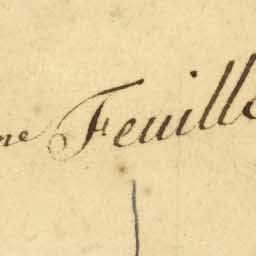 me Feuille